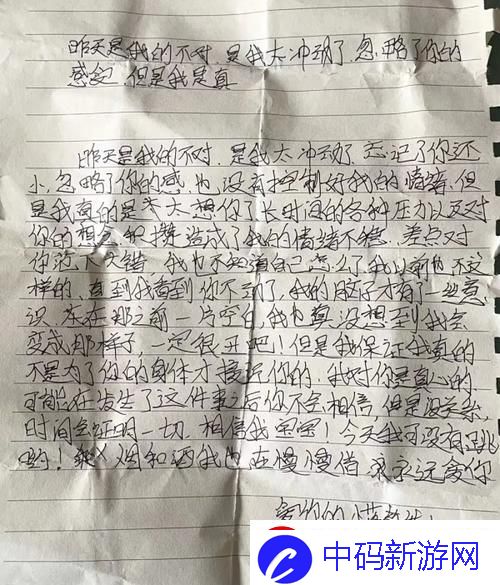 昨天是我的不对,是我太冲动了,忽略了你的
感觉,但是我是真
昨天是我的不对,是我太冲动了,忘记了你还
小,忽略了你的感,也没有控制好我的情绪,但
是我真的是太想你了,长时间的各种压力以及对
你的想念积攒造成了我的情绪不稳,差点对
你犯了大错,我也不知道自己怎么了,我以前也不这
样的,直到我看到你不动了,我的脑子才有了一丝意
识,在那之前一片空白,我也真没想到我会
变成那样子,一定很丑吧!但是我保证我真的
不是为了你的身体才接近你的,我对你是真心的,
可能在发生了这件事之后你不会相信,但是没关系,
时间会证明一切,相信我宝宝!今天我可没有
哟!烟和酒我也在慢慢借,永远爱你
爱你的
中码新游网